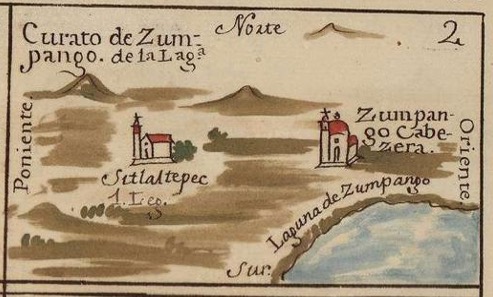 Curato de Zum-
pango. de la Lag.ª
Norte
2
Poniente.
Zunpan-
go Cabe-
zera.
Oriente
Sitlaltepec
1. Leg.
Laguna de Zumpango
Sur.